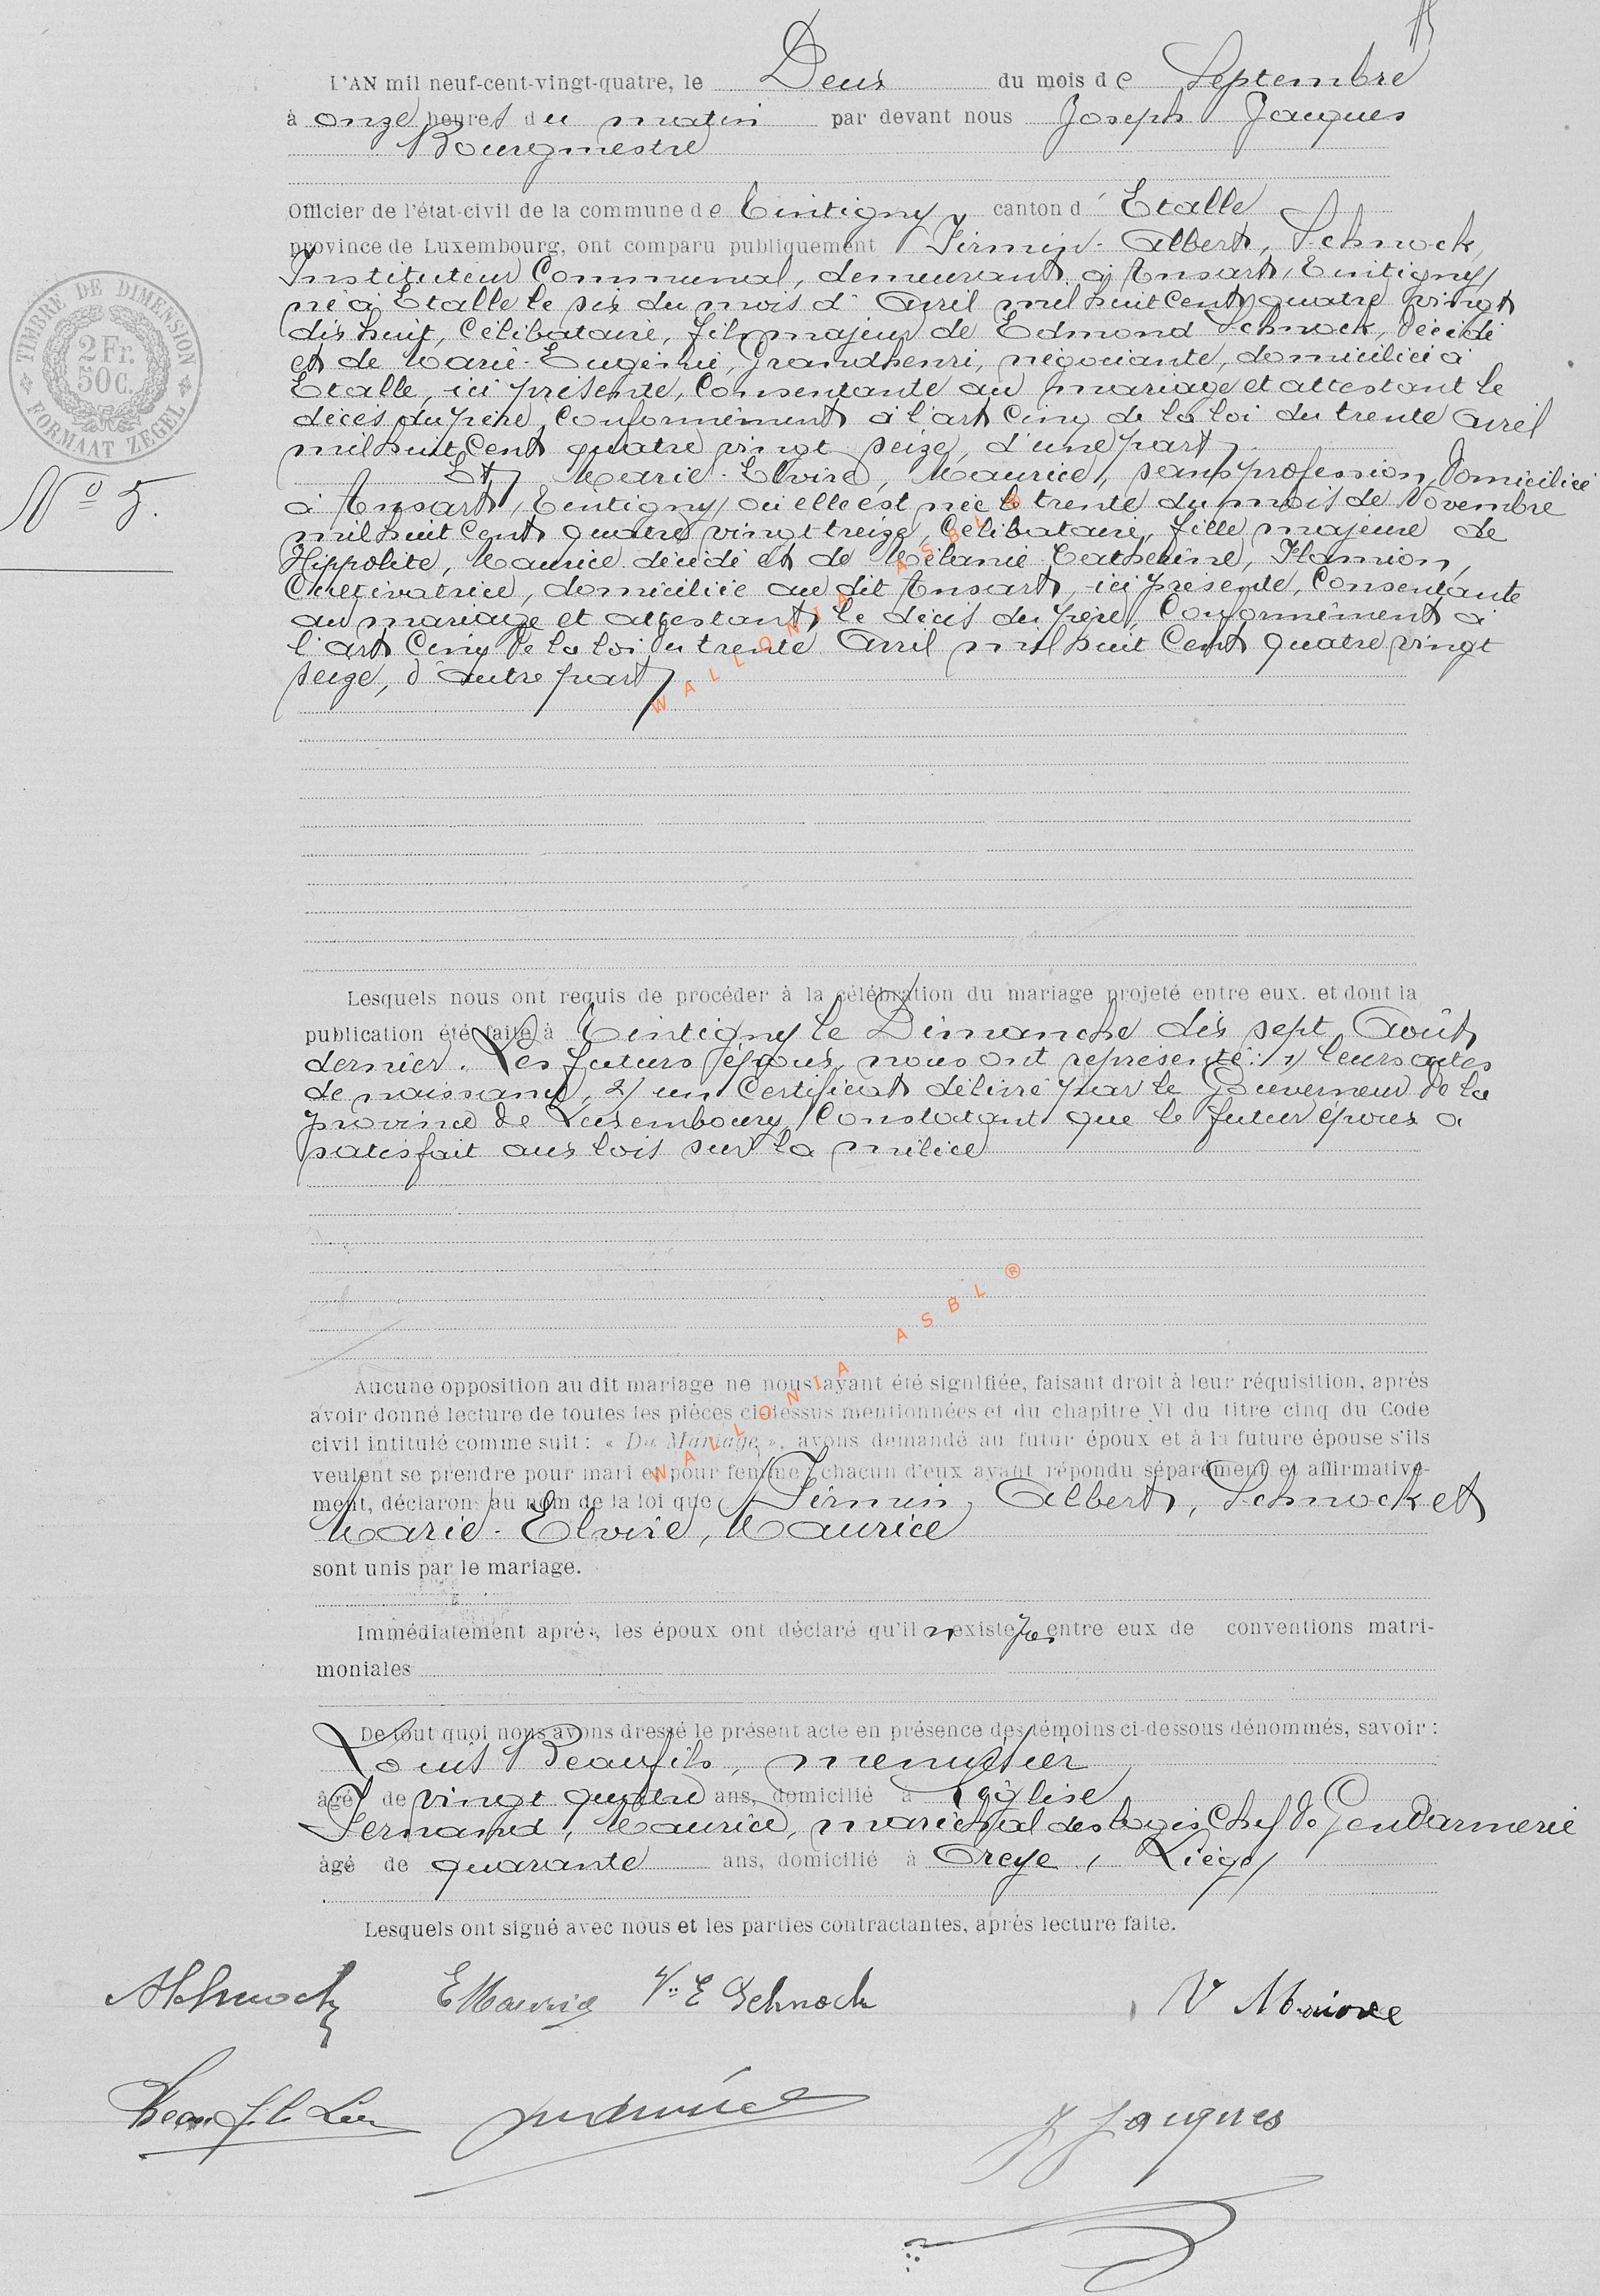 L'AN mil neuf-cent-vingt-quatre, le Deux du mois de Septembre
à onze heures du matin par devant nous Joseph Jacques
Bourgmestre
Officier de l'état-civil de la commune de Tintigny canton d' Etalle
province de Luxembourg, ont comparu publiquement Firmin-Albert, Schnock,
Instituteur Communal, demeurant à Ansart, Tintigny,
né à Etalle le six du mois d'Avril mil huit cent quatre vingt
dix huit, célibataire, fils majeur de Edmond Schnock, décédé
et de Marie-Eugénie, Grandhenri, négociante, domiciliée à
Etalle, ici présente, Consentante au mariage et attestant le
décès du père, Conformément à l'art Cinq de la loi du trente avril
mil huit Cent quatre vingt seize, d'une part,
Et, Marie-Elvire, Maurice, sans profession, Domiciliée
à Ansart, Tintigny, où elle est née le trente du mois de Novembre
mil huit Cent quatre vingt treize, Célibataire, fille majeure de
Hippolite, Maurice décédé et de Mélanie Catherine, Flamion,
Cultivatrice, domiciliée au dit Ansart, ici présente, Consentante
au mariage et attestant le décès du père, Conformément à
l'art Cinq de la loi du trente Avril mil huit Cent quatre vingt
seize, d'autre part,
TIMBRE DE DIMENSION
2 Fr.
50 C.
FORMAAT ZEGEL
N° 5.
WALLONIA ASBL ®
Lesquels nous ont requis de procéder à la célébration du mariage projeté entre eux. et dont la
publication été faite à Tintigny le Dimanche dix sept Août
dernier. Les futurs époux nous ont représenté: 1) leurs actes
de naissance, 2) un Certificat délivré par le Gouverneur de la
province de Luxembourg Constatant que le futur époux a
satisfait aux lois sur la milice
WALLONIA ASBL ®
Aucune opposition au dit mariage ne nous ayant été signifiée, faisant droit à leur réquisition, après
avoir donné lecture de toutes les pièces ci-dessus mentionnées et du chapitre VI du titre cinq du Code
civil intitulé comme suit: « Du Mariage », avons demandé au futur époux et à la future épouse s'ils
veulent se prendre pour mari et pour femme; chacun d'eux ayant répondu séparément et affirmative-
ment, déclarons au nom de la loi que Firmin, Albert, Schnock et
Marie-Elvire, Maurice
sont unis par le mariage.
Immédiatement après, les époux ont déclaré qu'il n'existe pas entre eux de conventions matri-
moniales
De tout quoi nous avons dressé le présent acte en présence des témoins ci-dessous dénommés, savoir:
Louis Beaufils, menuisier
âgé de vingt quatre ans, domicilié à Léglise
Fernand, Maurice, maréchal des logis Chef de Gendarmerie
âgé de quarante ans, domicilié à Oreye, Liége,
Lesquels ont signé avec nous et les parties contractantes, après lecture faite.
ASchnock EMaurice Vve E Schnock V Maurice
Beaufils J Jacques